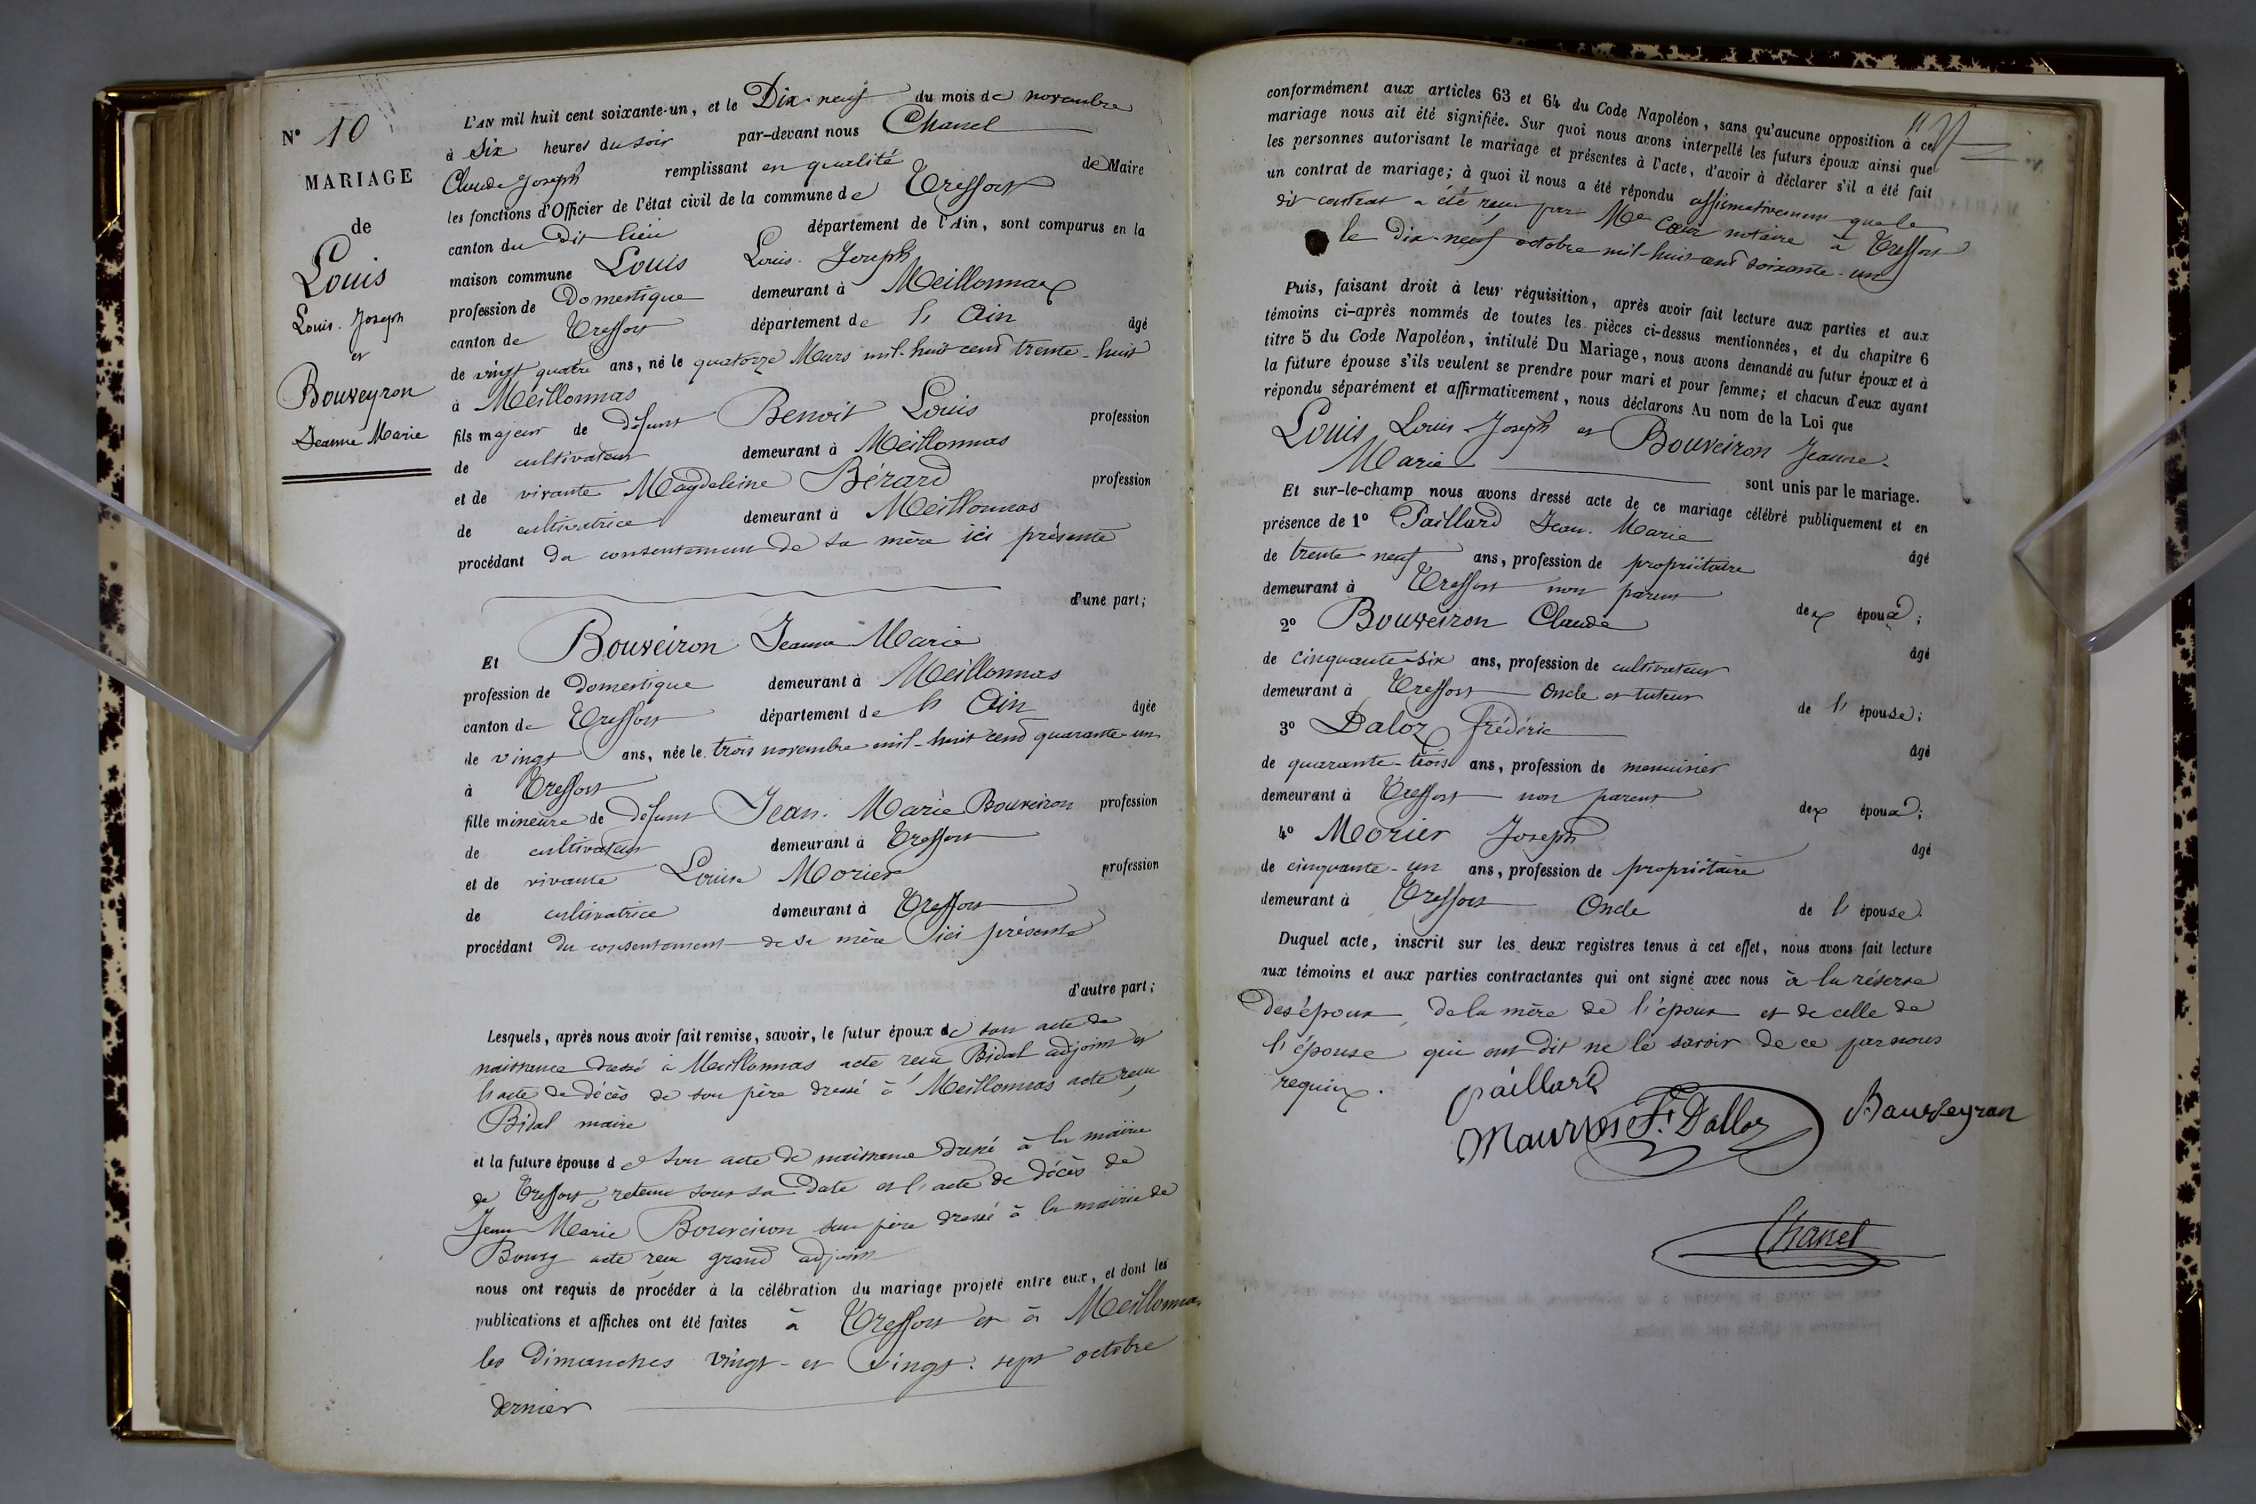 N° 10
MARIAGE
de
Louis
Louis. Joseph
et
Bouveyron
Jeanne Marie
L'AN mil huit cent soixante-un, et le Dix-neuf du mois de novembre
à Six heures du soir par-devant nous Chanel
Claude Joseph remplissant en qualité de Maire
les fonctions d'Officier de l'état civil de la commune de Treffort
canton du dit lieu département de l'Ain, sont comparus en la
maison commune Louis Louis. Joseph
profession de Domestique demeurant à Meillonnax
canton de Treffort département de l'Ain âgé
de vingt quatre ans, né le quatorze Mars mil-huit cend trente-huit
à Meillonnas
fils majeur de défunt Benoit Louis profession
de cultivateur demeurant à Meillonnas
et de vivante Magdeleine Bérard profession
de cultivatrice demeurant à Meillonnas
procédant du consentement de sa mère ici présente
d'une part;
Et Bouveiron Jeanne Marie
profession de Domestique demeurant à Meillonnas
canton de Treffort département de l'Ain âgée
de vingt ans, née le trois novembre mil-huit cend quarante-un
à Treffort
fille mineure de défunt Jean. Marie Bouveiron profession
de cultivateur demeurant à Treffort
et de vivante Louise Morier profession
de cultivatrice demeurant à Treffort
procédant du consentement de sa mère ici présente
d'autre part;
Lesquels, après nous avoir fait remise, savoir, le futur époux de son acte de
naissance dressé à Meillonnas acte reçu Bidal adjoint et
l'acte de décès de son père dressé à Meillonnas acte reçu
Bidal maire
et la future épouse de son acte de naissance dressé à la mairie
de Treffort, retenu sous sa date et l'acte de décès de
Jean Marie Bouveiron son père dressé à la mairie de
Bourg acte reçu grand adjoint
nous ont requis de procéder à la célébration du mariage projeté entre eux, et dont les
publications et affiches ont été faites à Treffort et à Meillonnas
les Dimanches vingt-et vingt. sept octobre
dernier
conformément aux articles 63 et 64 du Code Napoléon, sans qu'aucune opposition à ce
mariage nous ait été signifiée. Sur quoi nous avons interpellé les futurs époux ainsi que
les personnes autorisant le mariage et présentes à l'acte, d'avoir à déclarer s'il a été fait
un contrat de mariage; à quoi il nous a été répondu affirmativement que le
dit contrat a été reçu par Me Cœur notaire à Treffort
le Dix-neuf octobre mil-huit cend soixante-un
Puis, faisant droit à leur réquisition, après avoir fait lecture aux parties et aux
témoins ci-après nommés de toutes les pièces ci-dessus mentionnées, et du chapitre 6
titre 5 du Code Napoléon, intitulé Du Mariage, nous avons demandé au futur époux et à
la future épouse s'ils veulent se prendre pour mari et pour femme; et chacun d'eux ayant
répondu séparément et affirmativement, nous déclarons Au nom de la Loi que
Louis Louis-Joseph et Bouveiron Jeanne-
Marie sont unis par le mariage.
Et sur-le-champ nous avons dressé acte de ce mariage célébré publiquement et en
présence de 1° Paillard Jean. Marie âgé
de trente-neuf ans, profession de propriétaire
demeurant à Treffort non parent dex époux;
2° Bouveiron Claude âgé
de cinquante-six ans, profession de cultivateur
demeurant à Treffort Oncle et tuteur de l'épouse;
3° Daloz frédéric âgé
de quarante-trois ans, profession de menuisier
demeurant à Treffort non parent dex époux;
4° Morier Joseph âgé
de cinquante-un ans, profession de propriétaire
demeurant à Treffort Oncle de l'épouse.
Duquel acte, inscrit sur les deux registres tenus à cet effet, nous avons fait lecture
aux témoins et aux parties contractantes qui ont signé avec nous à la réserve
des époux, de la mère de l'époux et de celle de
l'épouse qui ont dit ne le savoir de ce par nous
requix.
Paillard
F. Dalloz Bouveyron
Chanel